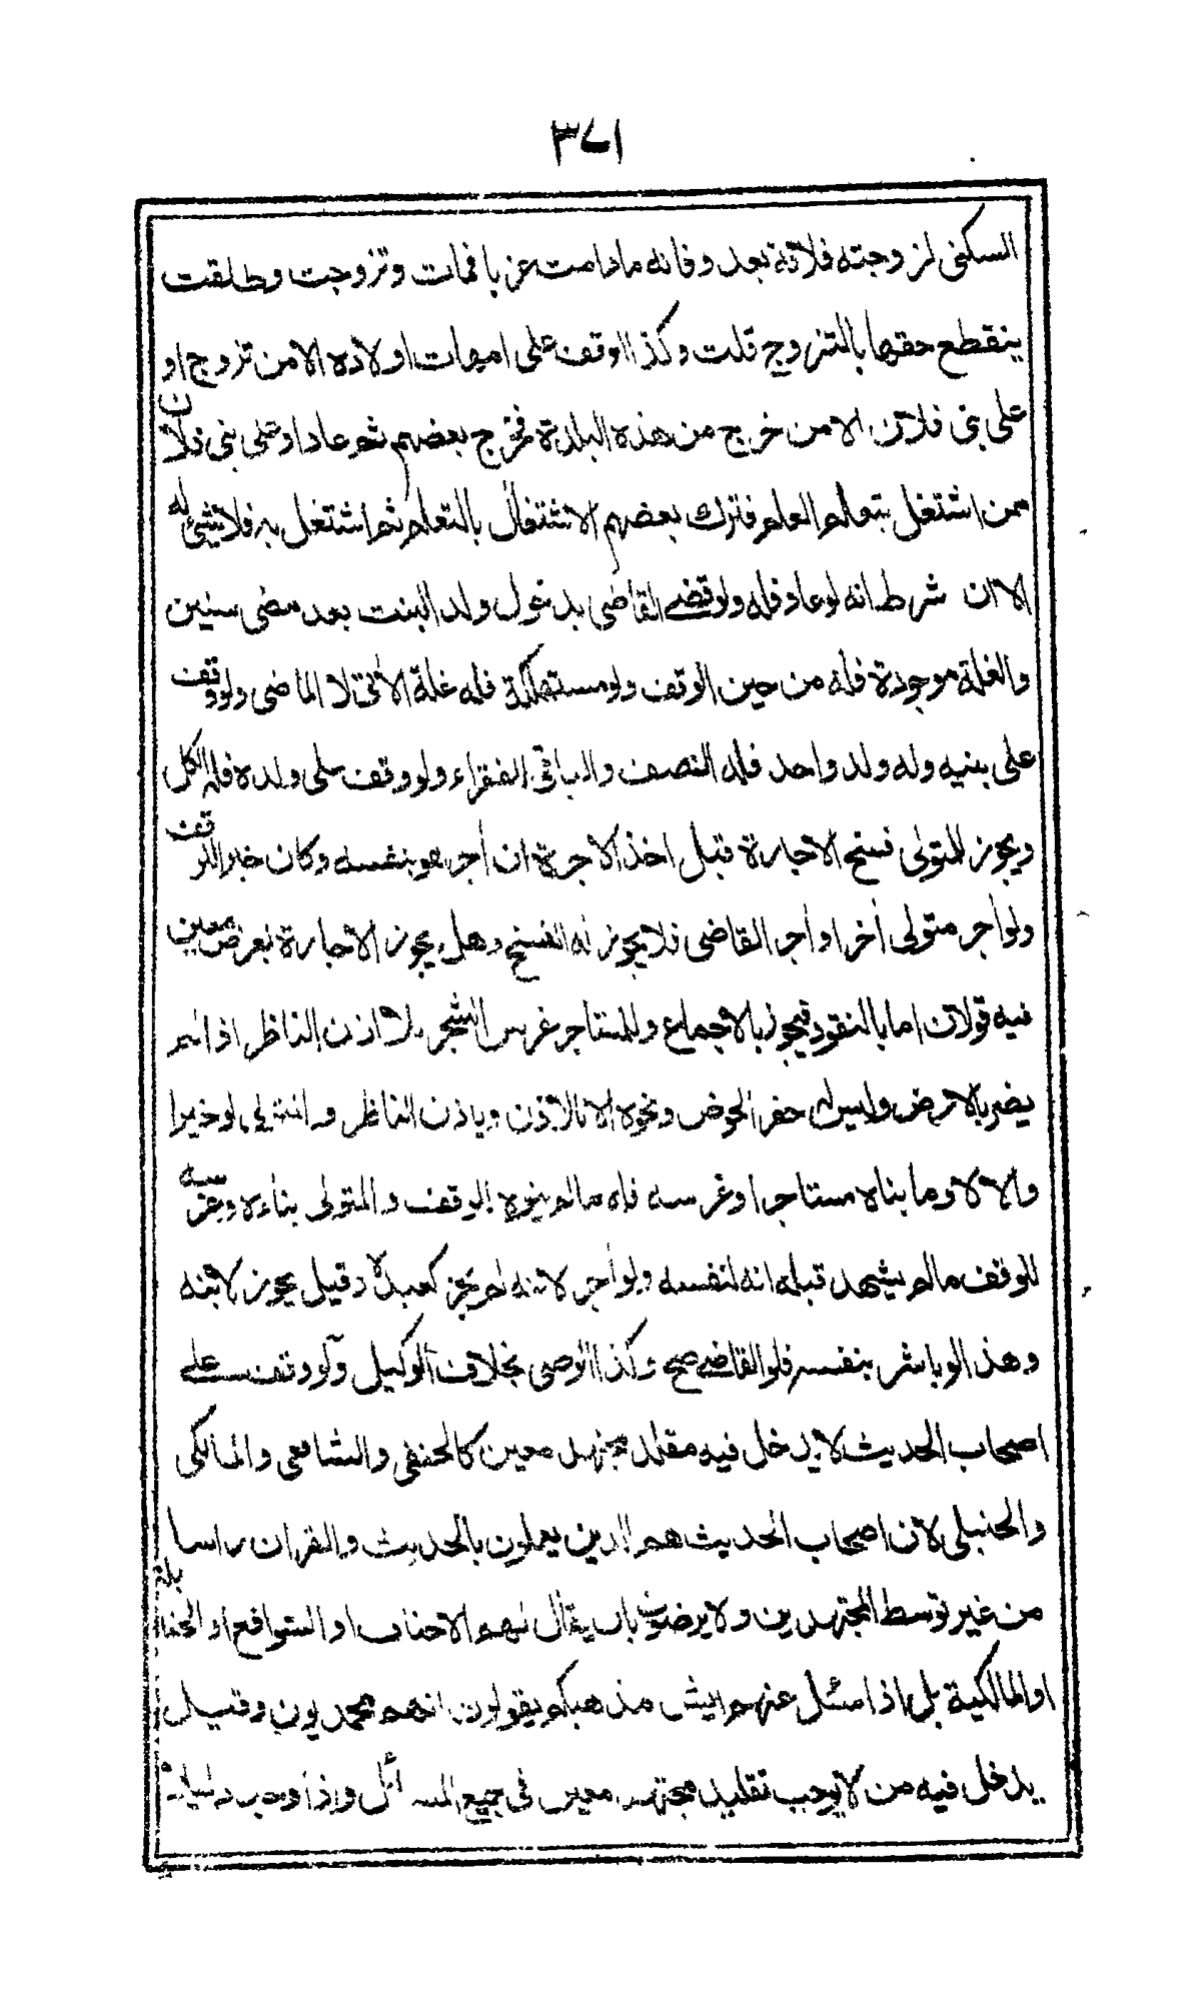 ٣٧١
السكنى لزوجته فلانة بعد وفاته مادامت عزبا فمات وتزوجت وطلقت
ينقطع حقها بالتزوج قلت وكذا الوقف على امهات اولاده الا من تزوج او
على بنى فلان الا من خرج من هذه البلدة فخرج بعضهم ثم عاد او على بنى فلان
ممن اشتغل بتعلم العلم فترك بعضهم الاشتغال بالتعلم ثم اشتغل به فلا شيئ له
الا ان شرط انه لو عاد فله ولو قضے القاضى بدخول ولد البنت بعد مضى سنين
والغلة موجودة فله من حين الوقف ولو مستهلكة فله غلة الأتى لا الماضى ولو وقف
على بنيه وله ولد واحد فله النصف والباقى للفقراء ولو وقف على ولده فله الكل
ويجوز للمتولى فسخ الاجارة قبل اخذ الاجرة ان أجر هو بنفسه وكان خيرا للوقف
ولو أجر متولى أخر او أجر القاضى فلا يجوز له الفسخ وهل يجوز الاجارة بعرض معين
فيه قولان اما بالنقود فيجوز بالاجماع وللمستاجر غرس الشجر بلا اذن الناظر اذا لم
يضر بالارض وليس له حفر الحوض ونحوه الا بالاذن وياذن الناظر والمتولى لو خيرا
والا لا وما بناه مستاجر او غرسه فله مالم ينوه للوقف والمتولى بناءه وغرسه
للوقف مالم يشهد قبله انه لنفسه ولو أجر لابنه لم يجز كعبده وقيل يجوز لابنه
وهذا لو باشر بنفسه فلو القاضے صح وكذا الوصى بخلاف الوكيل ولو وقف علے
اصحاب الحديث لا يدخل فيه مقلد مجتهد معين كالحنفى والشافعى والمالكى
والحنبلى لان اصحاب الحديث هم الذين يعملون بالحديث والقران راسا
من غير توسط المجتهدين ولا يرضون بان يقال لهم الاحناف او الشوافع او الحنابلة
او المالكية بل اذا سئل عنهم ايش مذهبكم يقولون انهم محمديون وقيل
يدخل فيه من لا يوجب تقليد مجتهد معين فى جميع المسائل واذا وجد دليلا